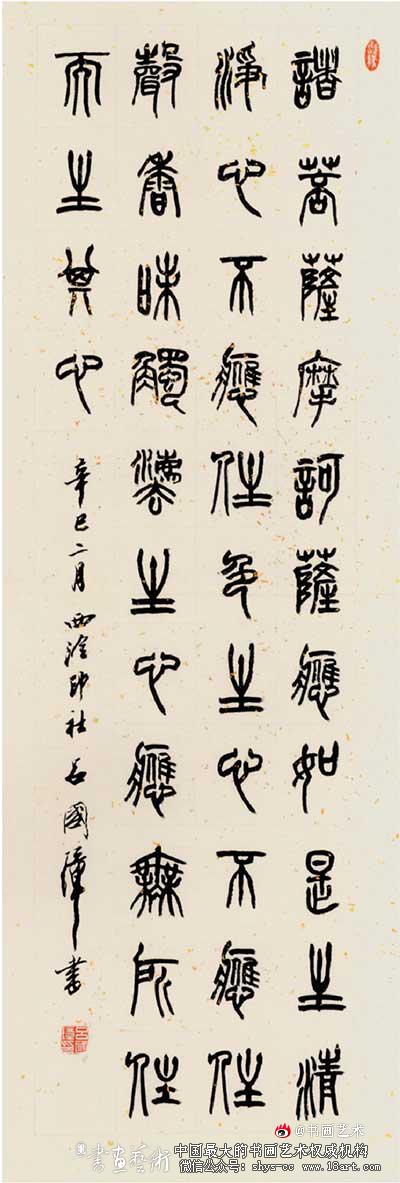 諸菩薩摩訶薩應如是生清
淨心不應住色生心不應住
聲香味觸灋生心應無所住
而生其心
辛巳二月西泠印社呂國璋書
@书画艺术
書畫藝術
中国最大的书画艺术权威机构
微信公众号：shys-cc www.18art.com